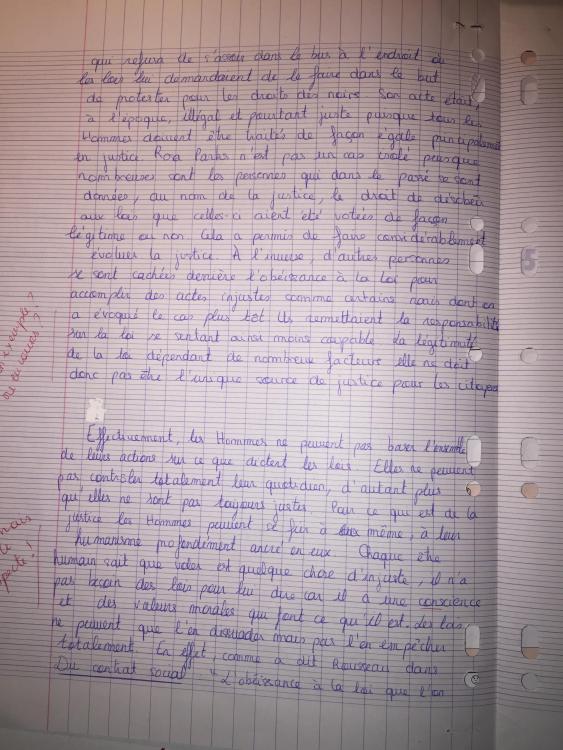 qui refusa de s'assoir dans le bus à l'endroit où
les lois lui demandaient de le faire dans le but
de protester pour les droits des noirs. Son acte était,
à l'époque, illégal et pourtant juste puisque tous les
Hommes doivent être traités de façon égale principalement
en justice. Rosa Parks n'est pas un cas isolé puisque
nombreuses sont les personnes qui dans le passé se sont
données, au nom de la justice, le droit de désobéir
aux lois que celles-ci aient été votées de façon
légitime ou non. Cela a permis de faire considérablement
évoluer la justice. À l'inverse, d'autres personnes
se sont cachées derrière l'obéissance à la loi pour
accomplir des actes injustes comme certains nazis dont on
a évoqué le cas plus tôt. Ils remettaient la responsabilité
sur la loi se sentant ainsi moins coupable. La légitimité
de la loi dépendant de nombreux facteurs elle ne doit
donc pas être l'unique source de justice pour les citoyens
Effectivement, les Hommes ne peuvent pas baser l'ensemble
de leurs actions sur ce que dictent les lois. Elles ne peuvent
pas contrôler totalement leur quotidien, d'autant plus
qu'elles ne sont pas toujours justes. Pour ce qui est de la
justice les Hommes peuvent se fier à eux même, à leur
humanisme profondément ancré en eux. Chaque être
humain sait que voler est quelque chose d'injuste, il n'a
pas besoin des lois pour lui dire car il a une conscience
et des valeurs morales qui font ce qu'il est. Les lois
ne peuvent que l'en dissuader mais pas l'en empêcher
totalement. En effet, comme a dit Rousseau dans
Du contrat social : "L'obéissance à la loi que l'on
exemple ?
ou au cours ?
mais